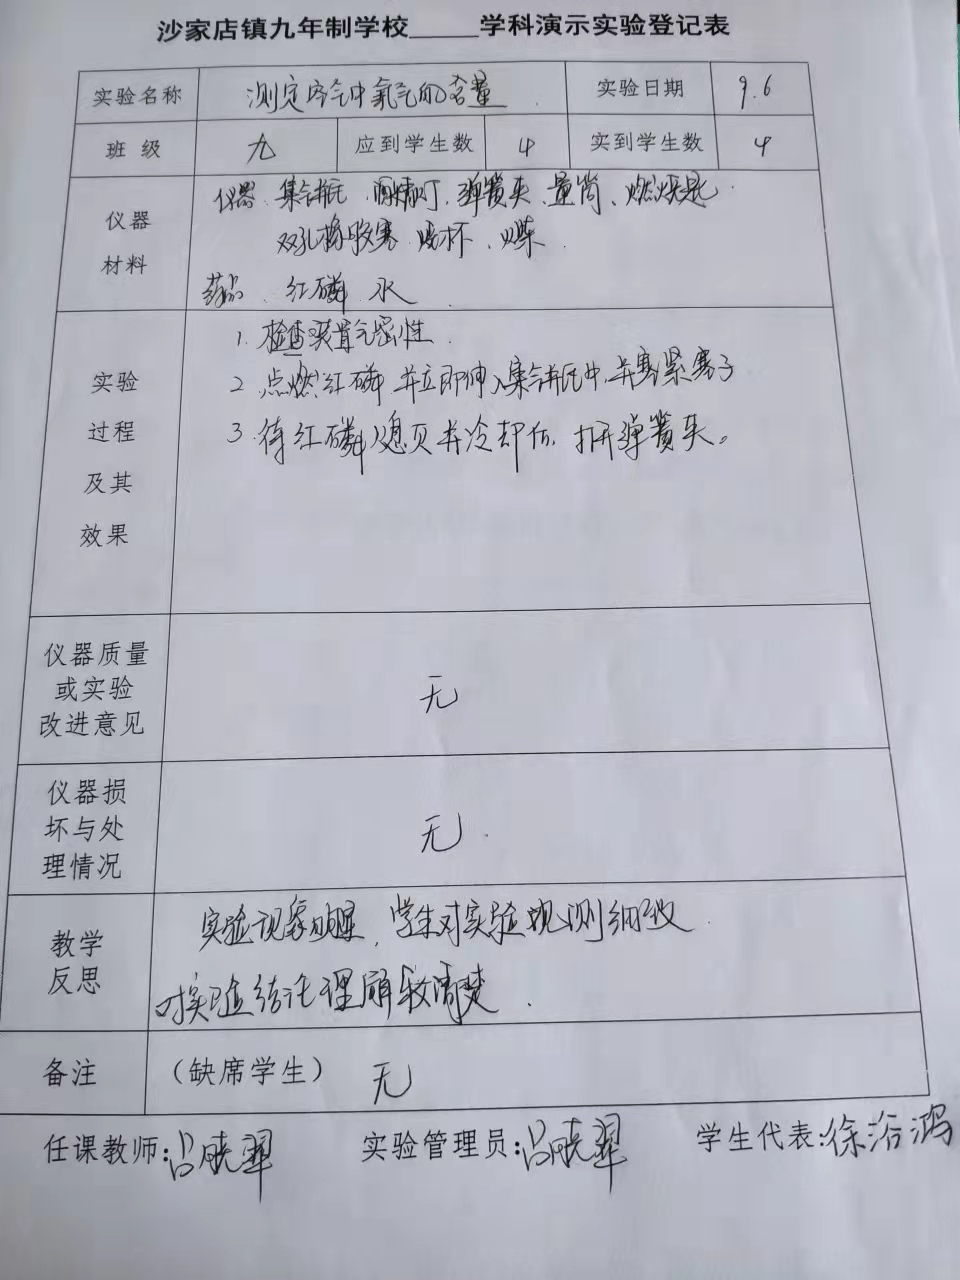 沙家店镇九年制学校_____学科演示实验登记表
实验名称 测定空气中氧气的含量 实验日期 9.6
班 级 九 应到学生数 4 实到学生数 4
仪器 材料
仪器、集气瓶、酒精灯、弹簧夹、量筒、燃烧匙
双孔橡胶塞 烧杯、火柴
药品、红磷、水
实验 过程 及其 效果
1. 检查装置气密性.
2. 点燃红磷 并立即伸入集气瓶中,并塞紧塞子
3. 待红磷熄灭并冷却后,打开弹簧夹。
仪器质量 或实验 改进意见 无
仪器损 坏与处 理情况 无.
教学 反思
实验现象明显,学生对实验观测细致.
对实验结论理解较清楚.
备注 (缺席学生) 无
任课教师:吕晓翠 实验管理员:吕晓翠 学生代表:徐浴鸿